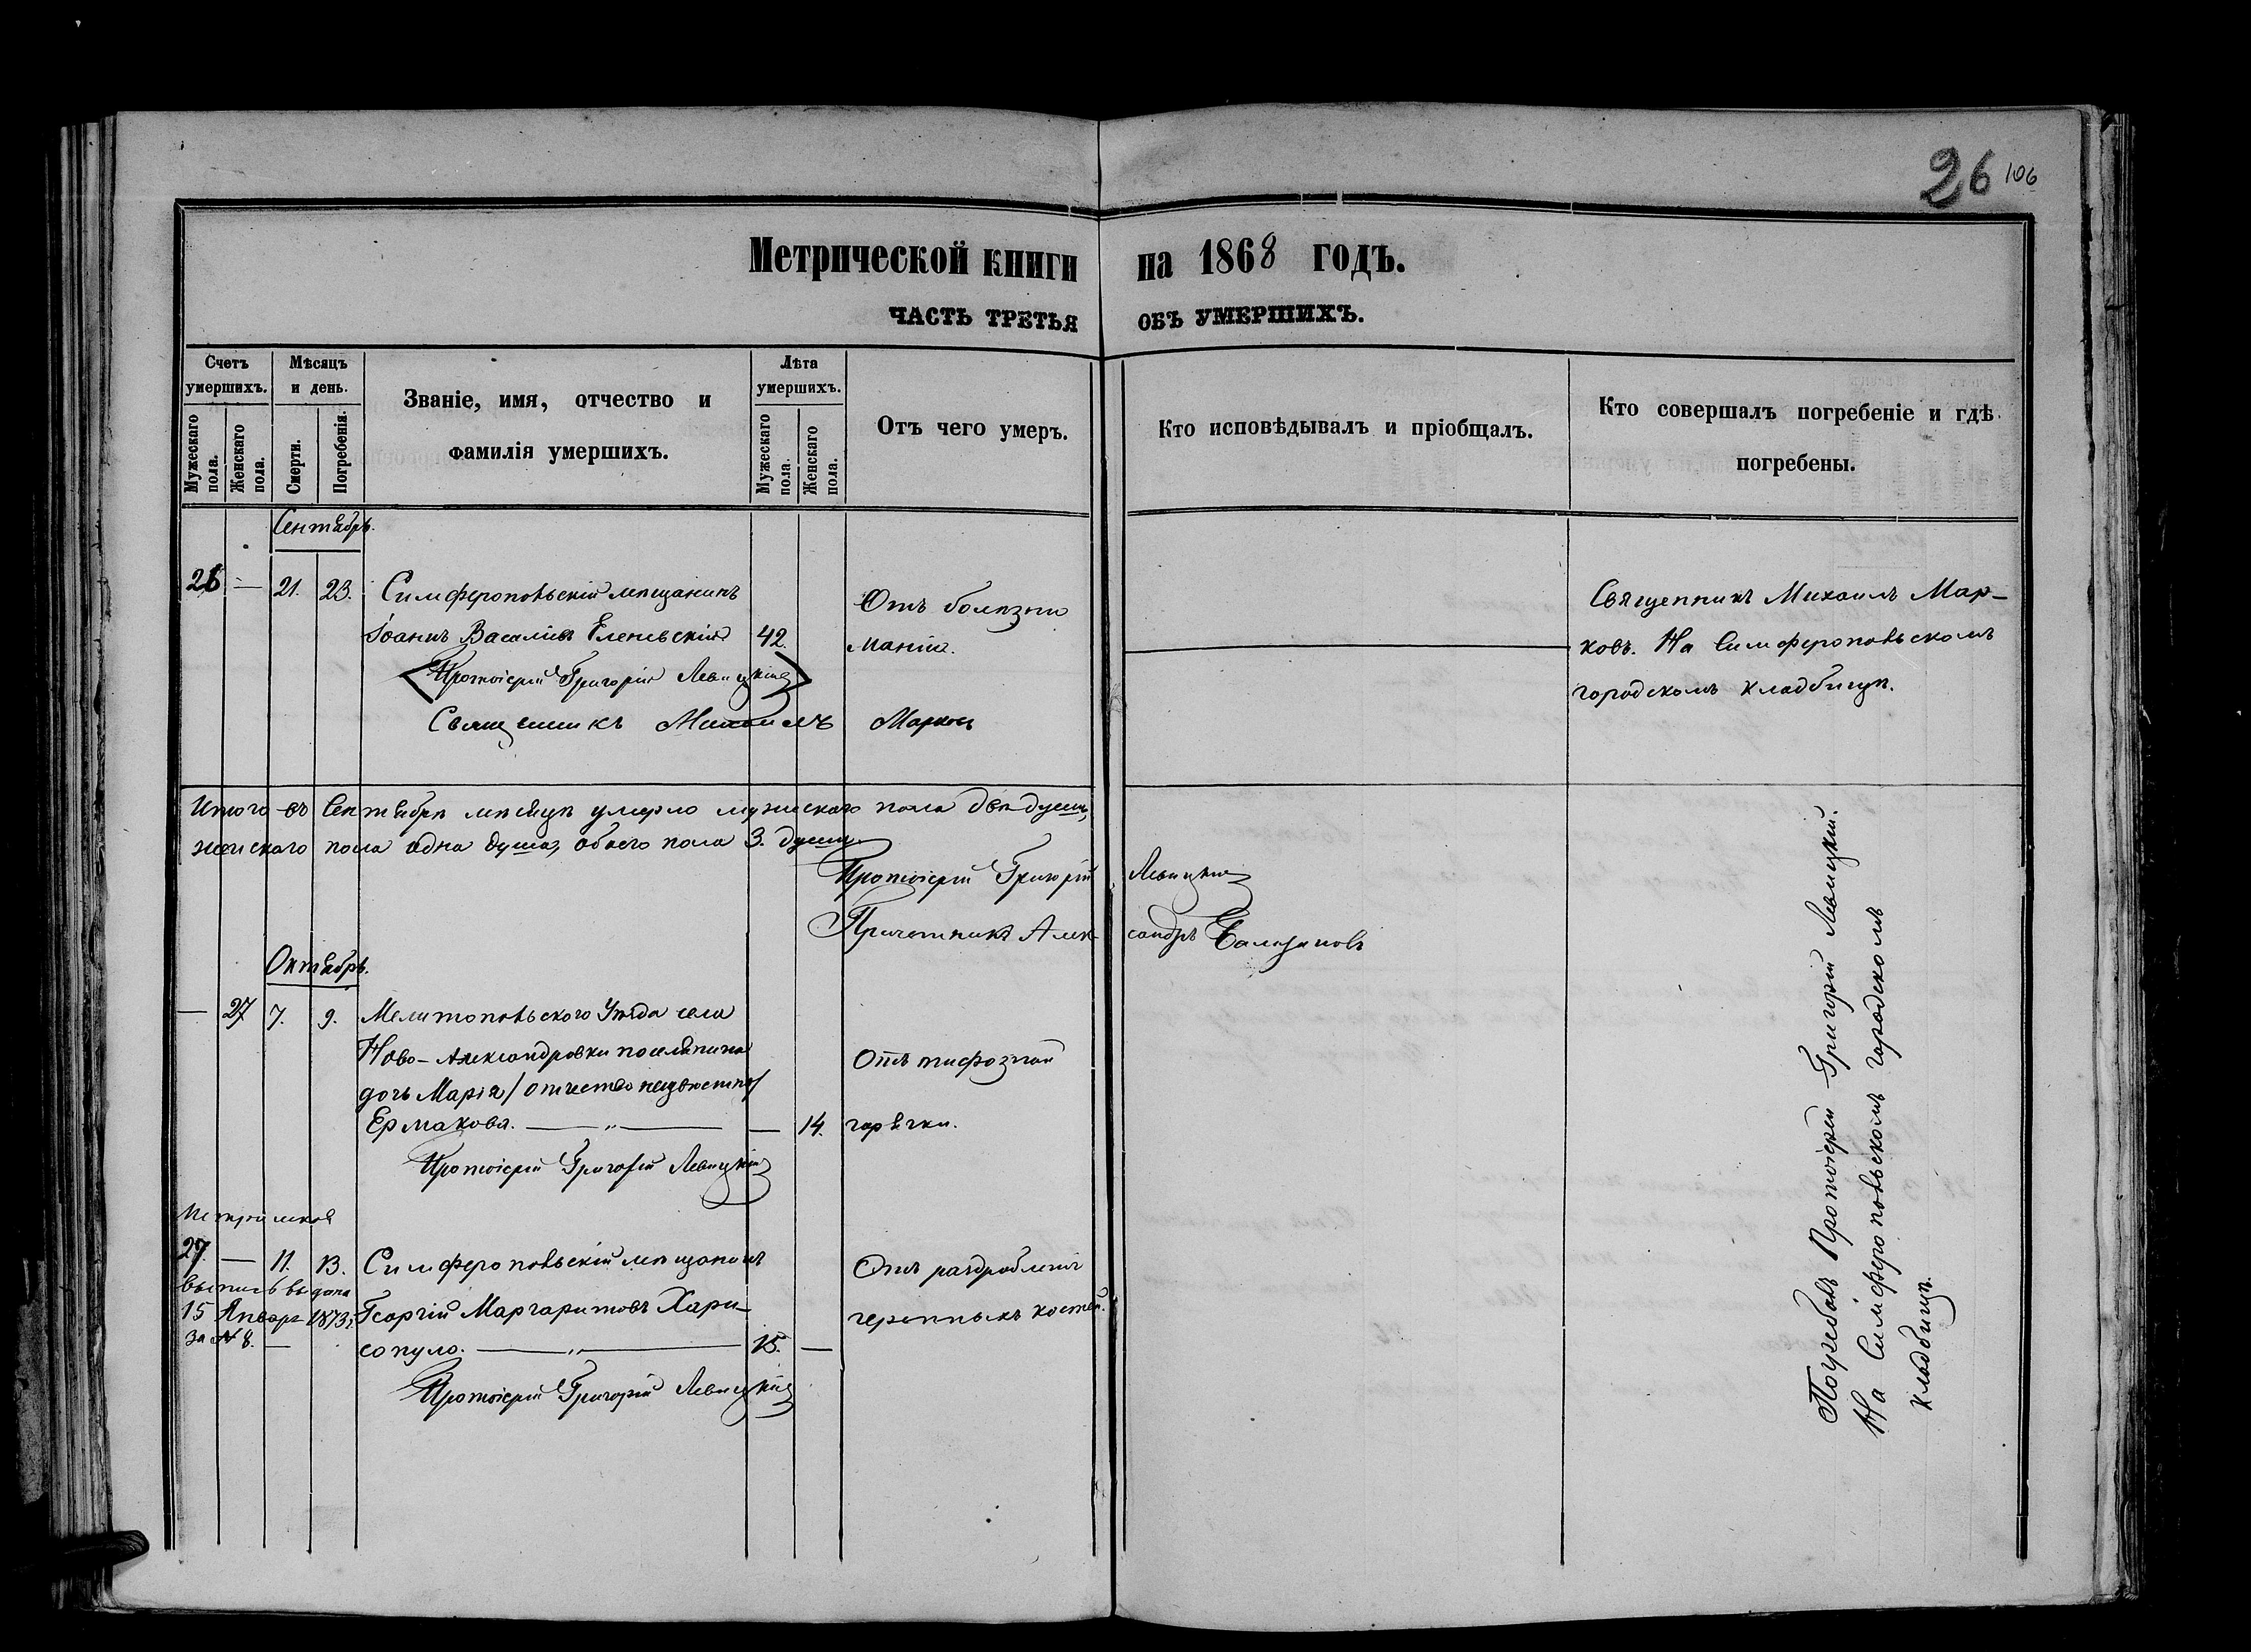 26 106
Метрической книги на 1868 годъ.
ЧАСТЬ ТРЕТЬЯ ОБЪ УМЕРШИХЪ.
Счетъ умершихъ.
Мужескаго пола.
Женскаго пола.
Мѣсяцъ и день.
Смерти.
Погребенія.
Званіе, имя, отчество и
фамилія умершихъ.
Лѣта умершихъ.
Мужескаго пола.
Женскаго пола.
Отъ чего умеръ.
Кто исповѣдывалъ и пріобщалъ.
Кто совершалъ погребеніе и гдѣ
погребены.
Сентябрь.
26 — 21. 23. Симферопольскій мѣщанинъ
Іоаннъ Василіевъ 42.
Отъ болѣзни
маніи.
Священникъ Михаилъ Мар-
ковъ. На Симферопольскомъ
городскомъ кладбищѣ.
Протоіерей Григорій Левицкій
Священникъ Михаилъ Марковъ
Итого въ Сентябрѣ мѣсяцѣ умерло мужескаго пола двѣ души,
женскаго пола одна душа, обоего пола 3. души.
Протоіерей Григорій Левицкій
Причетникъ Алек-сандръ
Октябрь.
— 27 7. 9. Мелитопольскаго Уѣзда села
Ново-Александровки поселянина
дочь Марія / отчество неизвѣстно /
Ермакова. — „ — — 14.
Отъ тифозной
горячки.
Протоіерей Григорій Левицкій
Метрическая
27. — 11. 13. Симферопольскій мѣщанинъ
выпись выдана
15 Января 1873 г.
за № 8.
Георгій Маргаритовъ Хари-
сопуло. — „ — 15. —
Отъ раздробленія
черепныхъ костей.
Протоіерей Григорій Левицкій
Погребалъ Протоіерей Григорій Левицкій.
На Симферопольскомъ городскомъ
кладбищѣ.